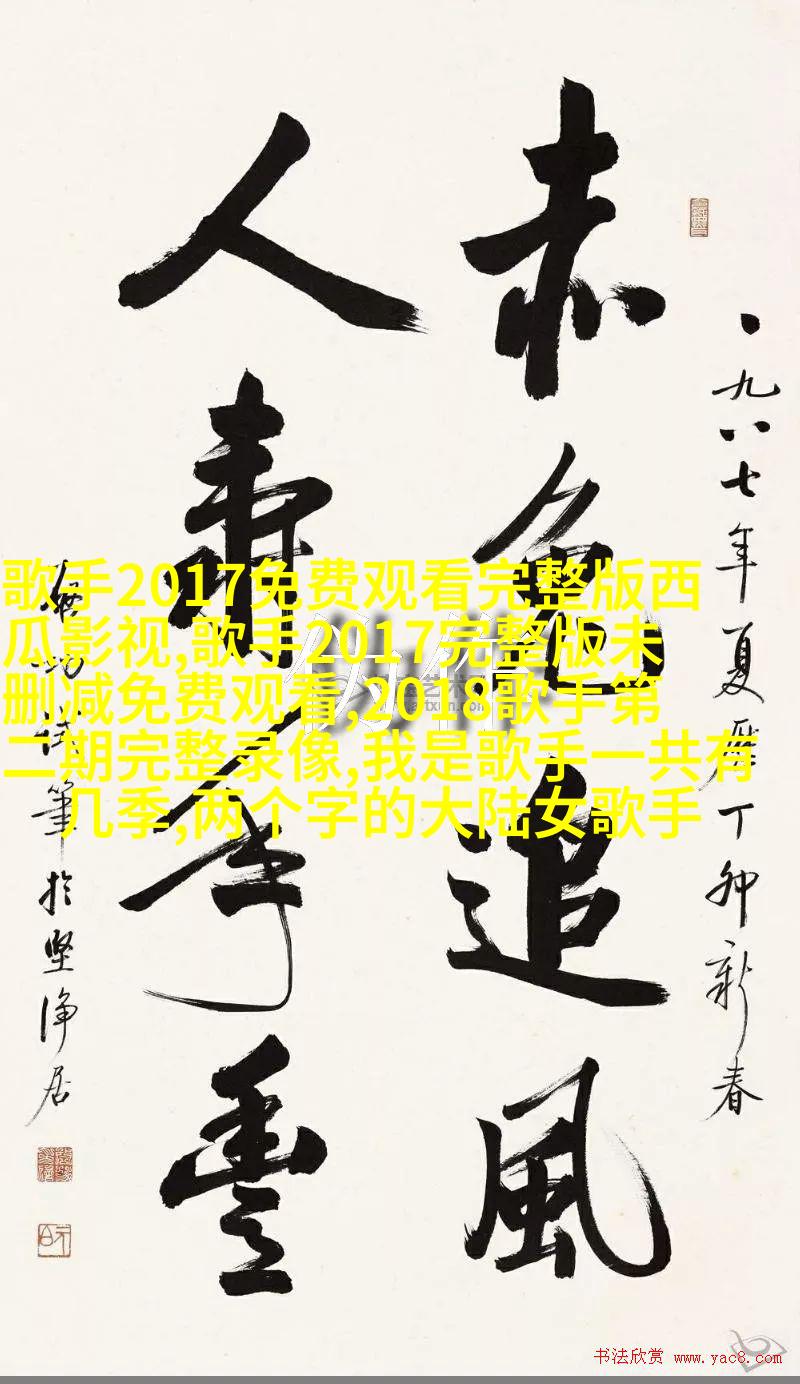 一九八七年夏曆丁卯新春
赤兔追風
人壽年豐
啟功試筆於坚淨居
歌手2017免费观看完整版西
瓜影视,歌手2017完整版未
删减免费观看,2018歌手第
二期完整录像,我是歌手一共有
几季,两个字的大陆女歌手
书法欣赏 www.yac8.com